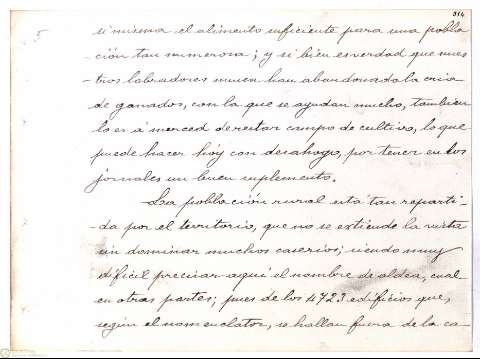 314
5
si misma el alimento suficiente para una pobla-
-ción tan numerosa; y si bien es verdad que nues-
-tros labradores nunca han abandonado la cria
de ganados, con la que se ayudan mucho, tambien
lo es á merced de restar campo de cultivo, lo que
puede hacer hóy con desahogo, por tener en los
jornales un buen suplemento.
La población rural está tan reparti-
-da por el territorio, que no se estiende la vista
sin dominar muchos caserios; siendo muy
dificil precisar aqui el nombre de aldea, cual
en otras partes; pues de los 4723 edificios que,
según el nomenclator, se hallan fuera de la ca-